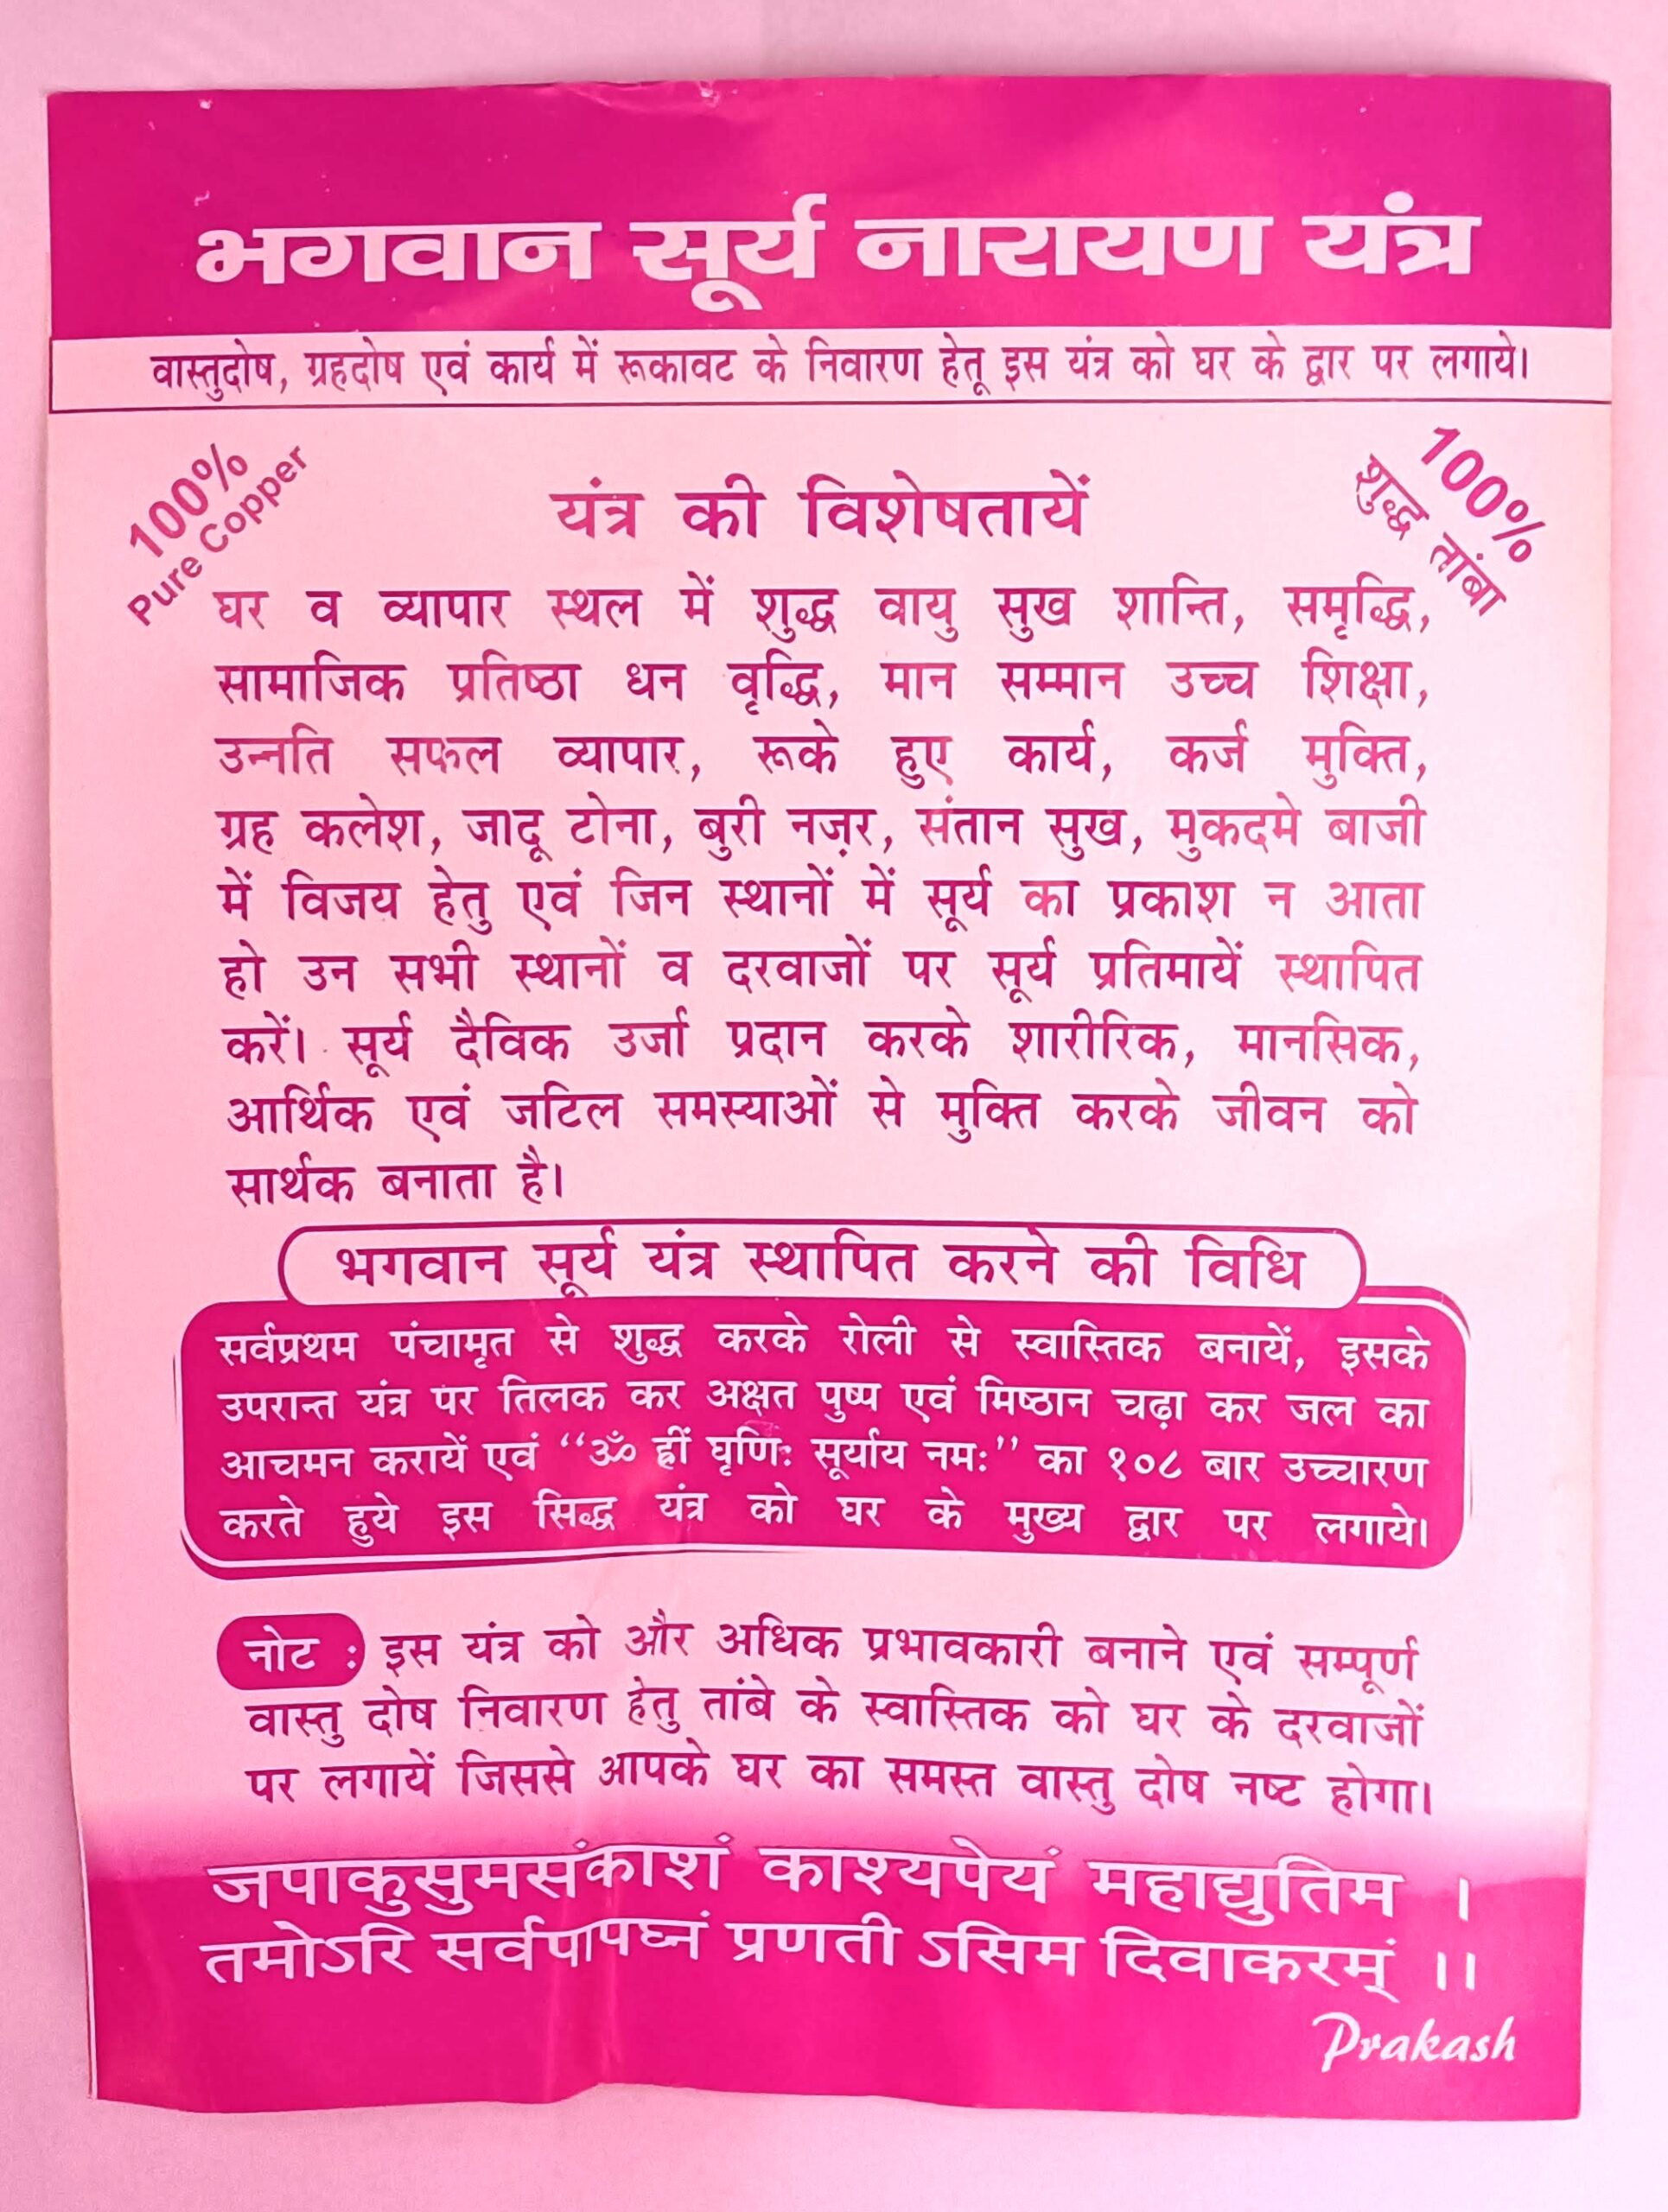 भगवान सूर्य नारायण यंत्र
वास्तुदोष, ग्रहदोष एवं कार्य में रूकावट के निवारण हेतू इस यंत्र को घर के द्वार पर लगाये।
100%
Pure Copper
100%
शुद्ध तांबा
यंत्र की विशेषतायें
घर व व्यापार स्थल में शुद्ध वायु सुख शान्ति, समृद्धि,
सामाजिक प्रतिष्ठा धन वृद्धि, मान सम्मान उच्च शिक्षा,
उन्नति सफल व्यापार, रूके हुए कार्य, कर्ज मुक्ति,
ग्रह कलेश, जादू टोना, बुरी नज़र, संतान सुख, मुकदमे बाजी
में विजय हेतु एवं जिन स्थानों में सूर्य का प्रकाश न आता
हो उन सभी स्थानों व दरवाजों पर सूर्य प्रतिमायें स्थापित
करें। सूर्य दैविक उर्जा प्रदान करके शारीरिक, मानसिक,
आर्थिक एवं जटिल समस्याओं से मुक्ति करके जीवन को
सार्थक बनाता है।
भगवान सूर्य यंत्र स्थापित करने की विधि
सर्वप्रथम पंचामृत से शुद्ध करके रोली से स्वास्तिक बनायें, इसके
उपरान्त यंत्र पर तिलक कर अक्षत पुष्प एवं मिष्ठान चढ़ा कर जल का
आचमन करायें एवं “ॐ ह्रीं घृणिः सूर्याय नमः” का १०८ बार उच्चारण
करते हुये इस सिद्ध यंत्र को घर के मुख्य द्वार पर लगाये।
नोट : इस यंत्र को और अधिक प्रभावकारी बनाने एवं सम्पूर्ण
वास्तु दोष निवारण हेतु तांबे के स्वास्तिक को घर के दरवाजों
पर लगायें जिससे आपके घर का समस्त वास्तु दोष नष्ट होगा।
जपाकुसुमसंकाशं काश्यपेयं महाद्युतिम ।
तमोऽरि सर्वपापघ्नं प्रणती ऽसिम दिवाकरम्ं ।।
Prakash